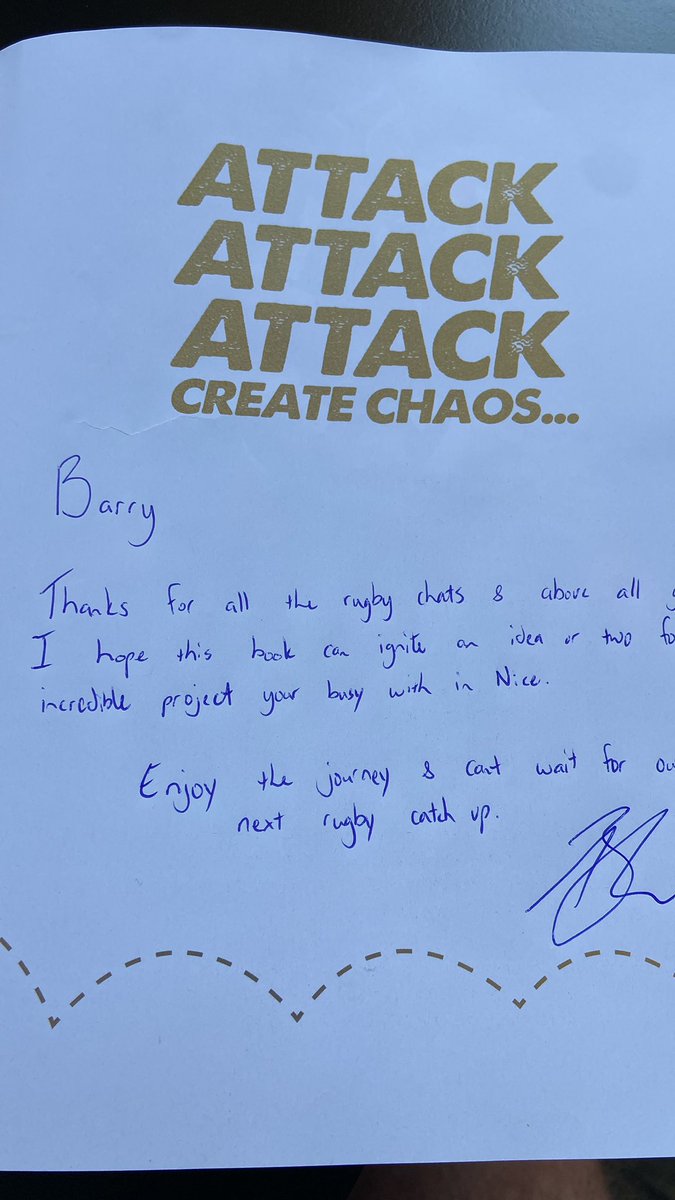 ATTACK
ATTACK
ATTACK
CREATE CHAOS...
Barry
Thanks for all the rugby chats & above all
I hope this book can ignite an idea or two fo
incredible project your busy with in Nice.
Enjoy the journey & cant wait for ou
next rugby catch up.